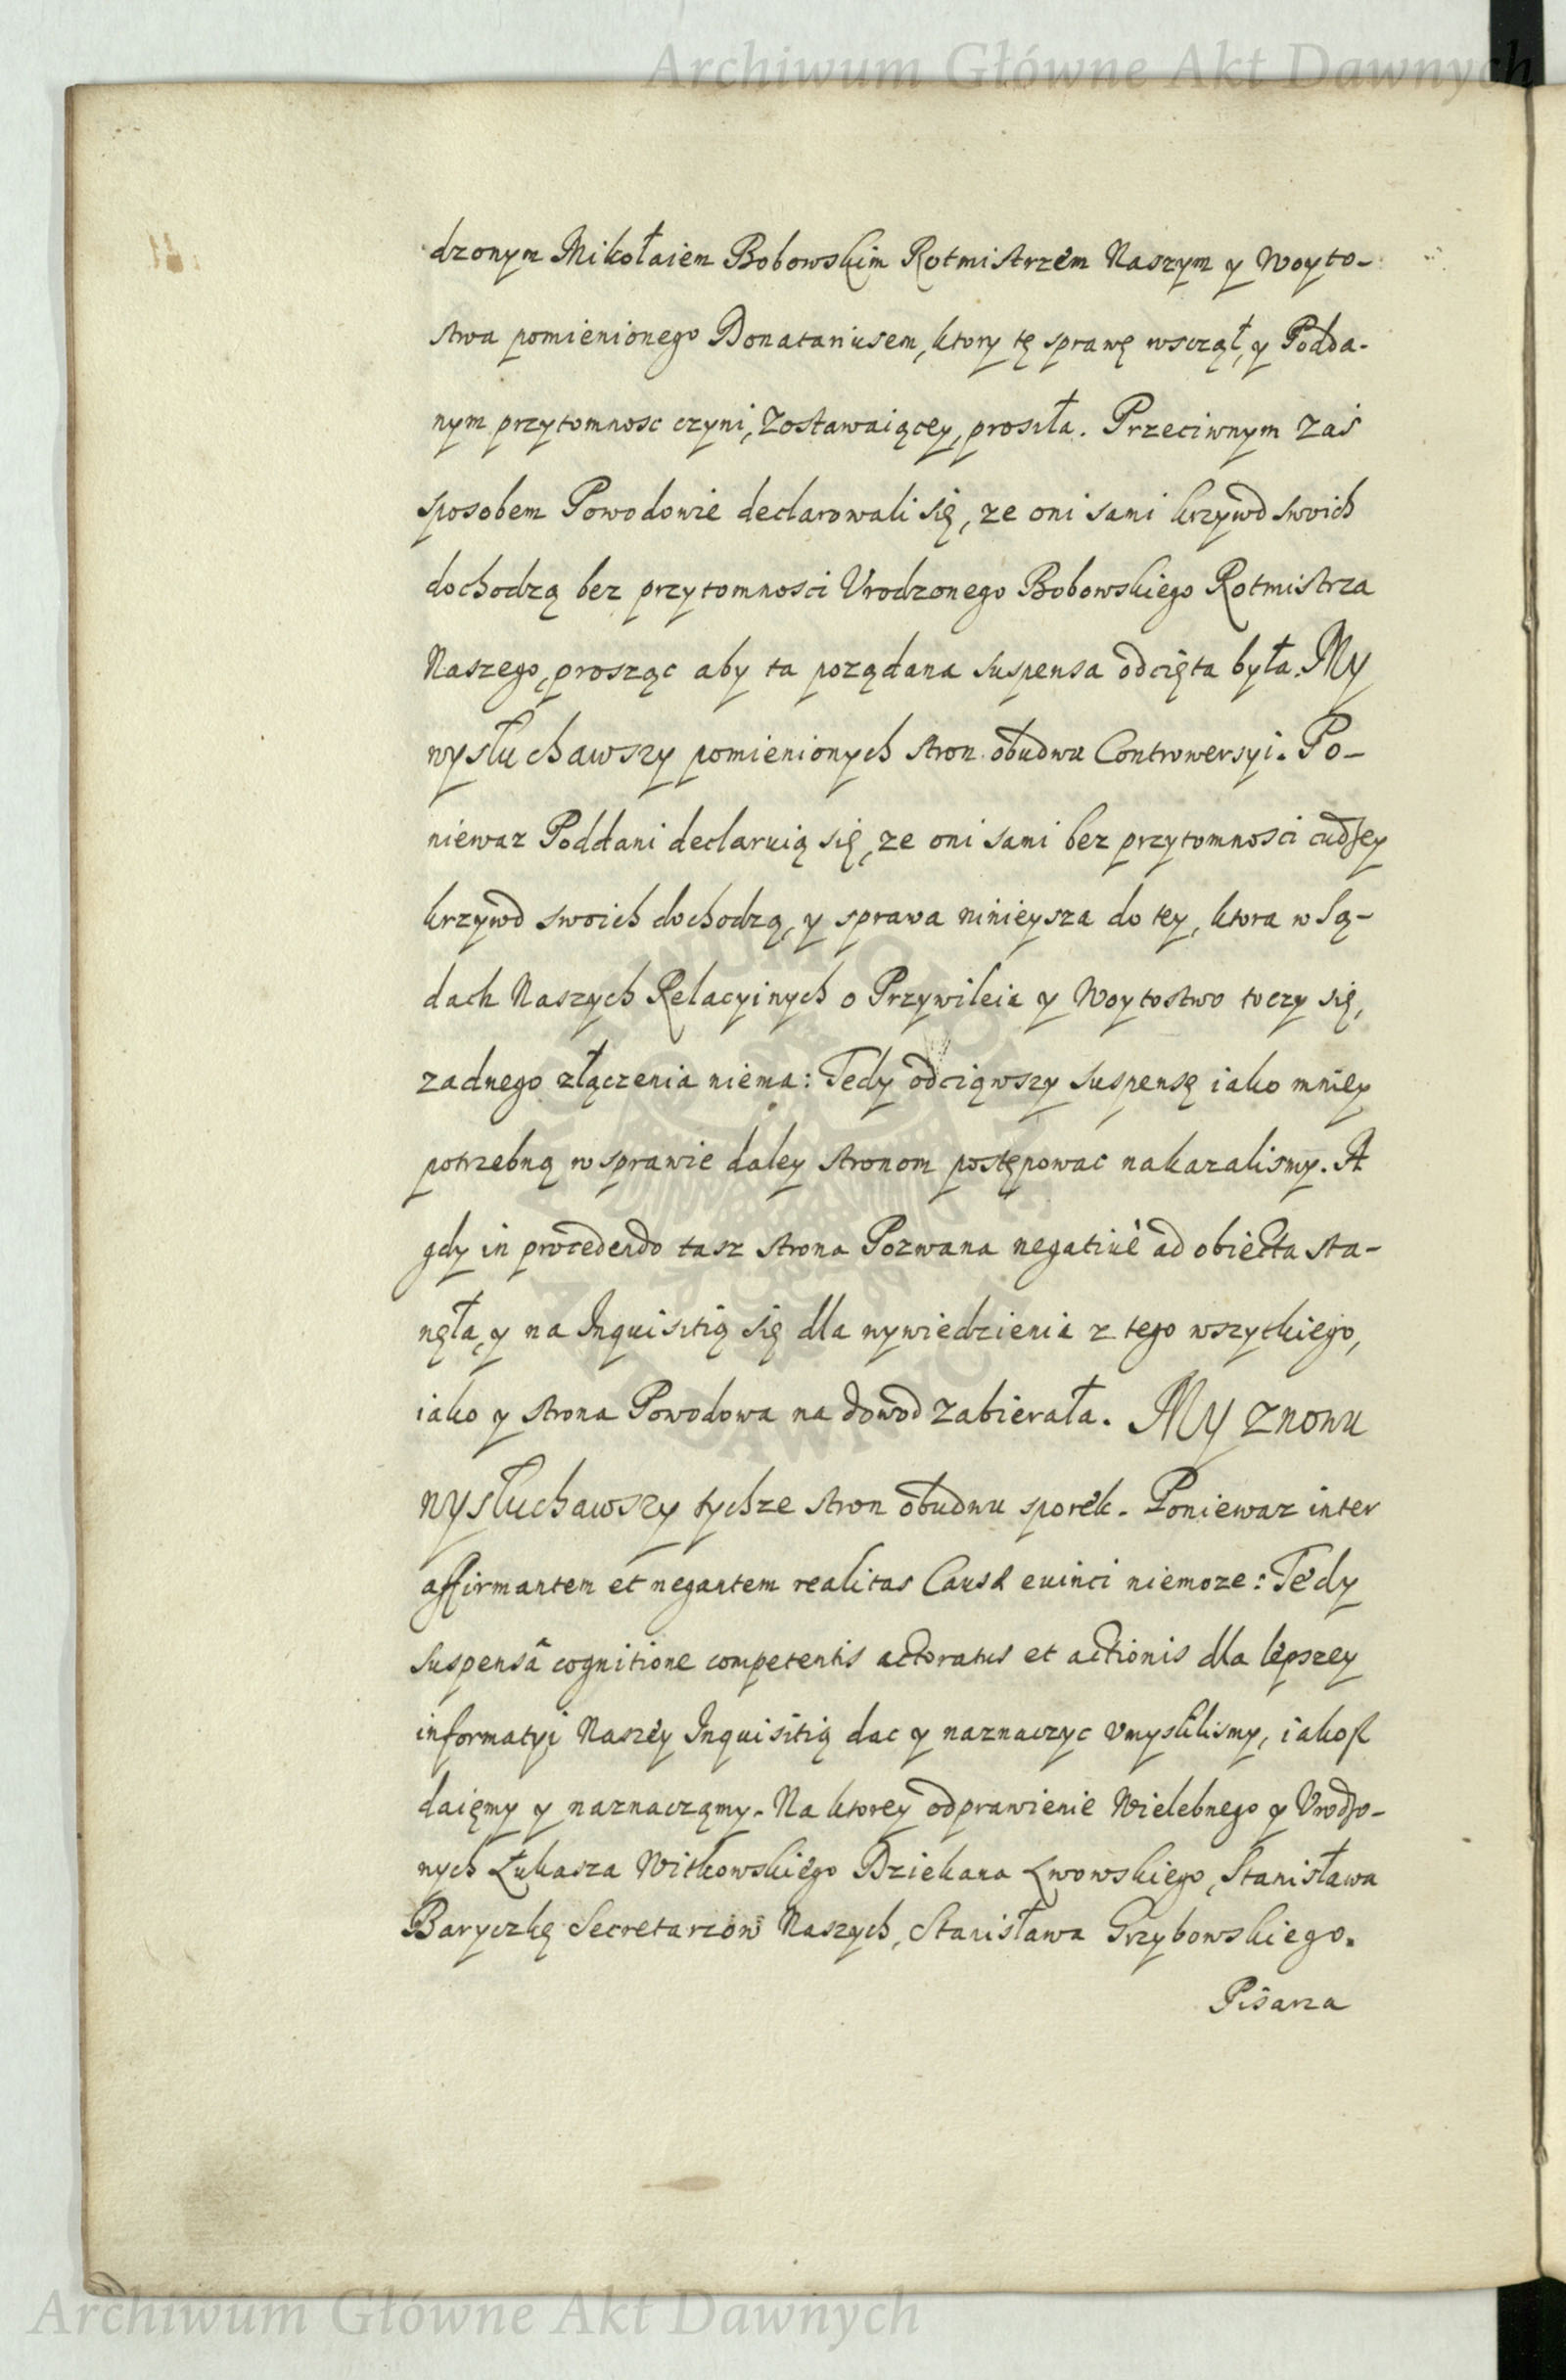 Archiwum Główne Akt Dawnych
dzonym Mikołaiem Bobowskim Rotmistrzem Naszym y Woyto-
stwa pomienionego Donatariusem, ktory tę sprawę wsczął, y Podda-
nym przytomnosc czyni, zostawaiącey, prosiła. Przeciwnym zaś
sposobem Powodowie declarowali się, ze oni sami krzywd swoich
dochodzą bez przytomnosci Vrodzonego Bobowskiego Rotmistrza
Naszego, prosząc aby ta poządana suspensa odcięta była. My
wysłuchawszy pomienionych stron obudwu Controwersyi. Po-
niewaz Poddani declaruią się, ze oni sami bez przytomnosci cudzey
krzywd swoich dochodzą, y sprawa ninieysza do tey, ktora w Są-
dach Naszych Relacyinych o Przywileia y Woytostwo toczy się,
zadnego złączenia niema: Tedy odciąwszy suspensę iako mniey
potrzebną w sprawie daley stronom postępowac nakazalismy. A
gdy in procedendo tasz strona Pozwana negatiuè ad obiecta sta-
nęła, y na Inquisitią się dla wywiedzienia z tego wszytkiego,
iako y strona Powodowa na dowod zabierała. My znowu
wysłuchawszy tychze stron obudwu sporek. Poniewaz inter
affirmantem et negantem realitas Causæ euinci niemoze: Tedy
suspensâ cognitione competentis actoratus et actionis dla lepszey
informatyi Naszey Inquisitią dac y naznaczyc vmyslilismy, iakosz
daięmy y naznaczamy. Na ktorey odprawienie Wielebnego y Vrodzo-
nych Łukasza Witkowskiego Dziekana Lwowskiego, Stanisława
Baryczkę Secretarzow Naszych, Stanisława Grzybowskiego.
Pisarza
Archiwum Główne Akt Dawnych